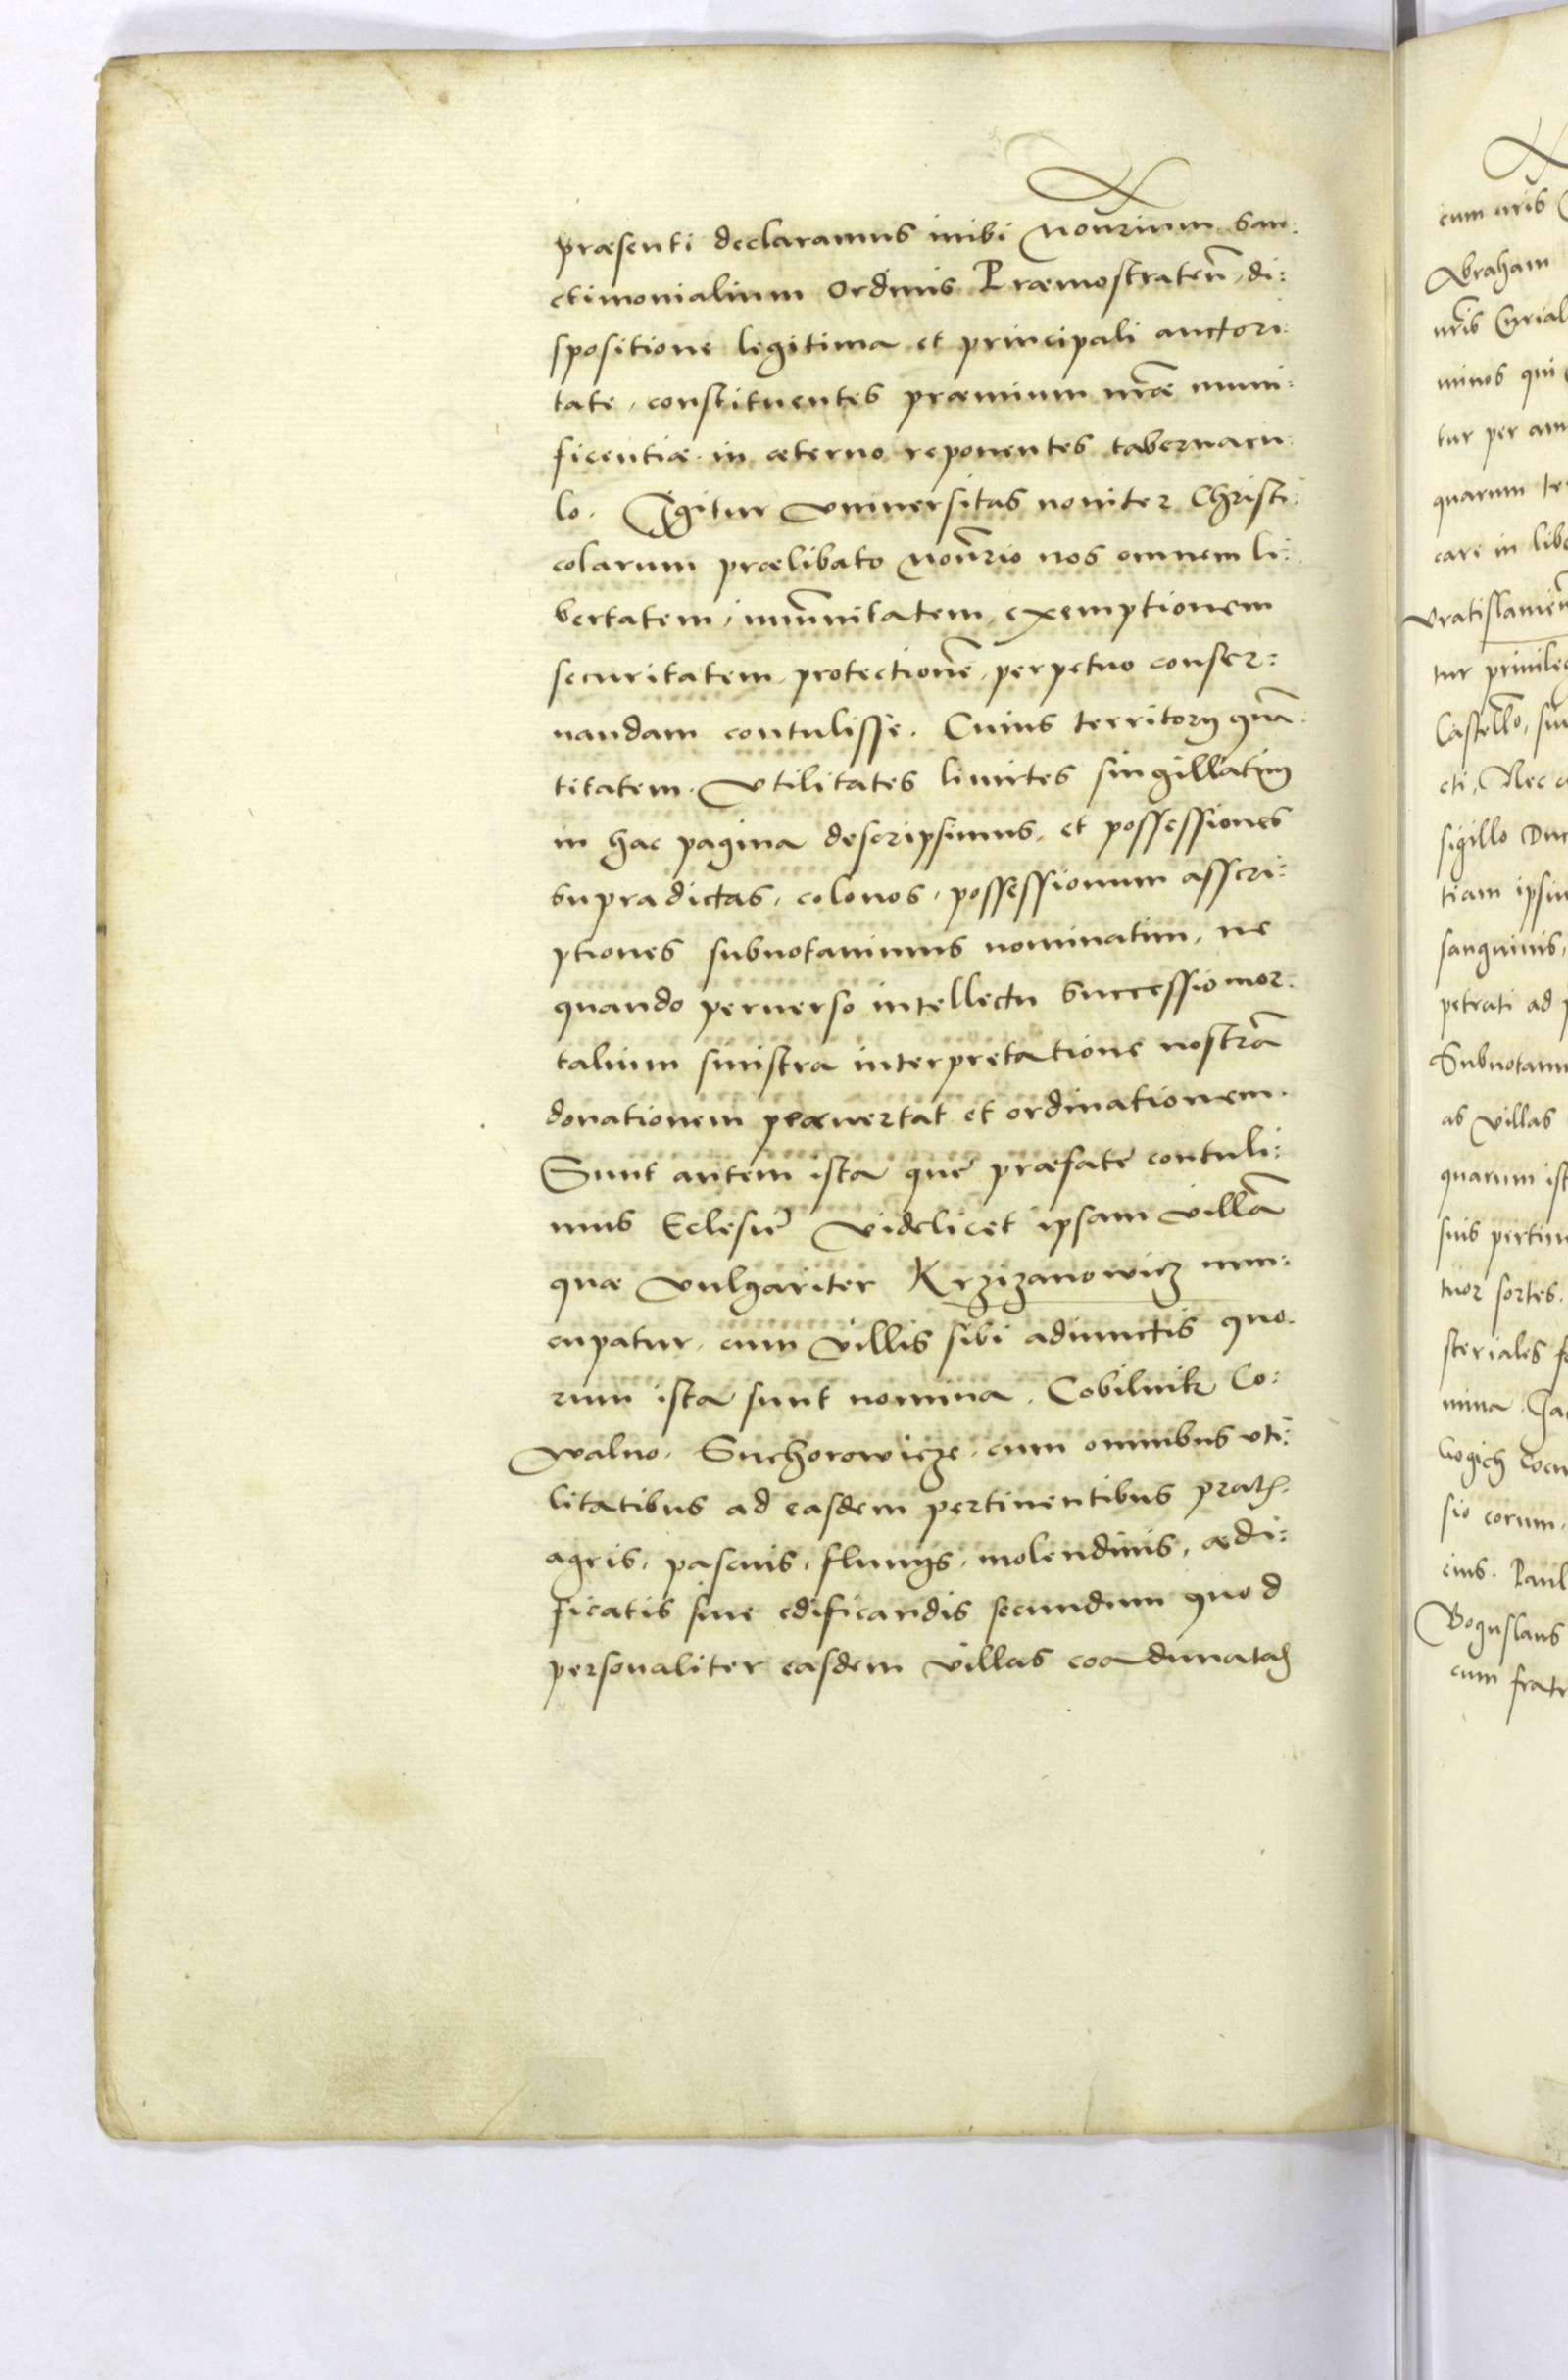 præsenti declaramus inibi Nou̅rium San:
ctimonialium Ordinis Præmostrateñ, di:
spositione legitima et principali auctori:
tate, constituentes præmium nr̅æ muni:
ficentiæ in æterno reponentes tabernacu:
lo. Igitur Vniuersitas nouiter Christi:
colarum prælibato Nou̅rio nos omnem li:
bertatem, im̅unitatem, exemptionem
securitatem, protectione̅, perpetuo conser:
uandam contulisse. Cuius territorij qua̅:
titatem. Vtilitates limites singillatim
in hac pagina descripsimus, et possessiones
supradictas, colonos, possessionum asscri:
ptiones subnotauimus nominatim, ne
quando peruerso intellectu successio mor:
talium sinistra interpretatione nostra̅
donationem præuertat et ordinationem.
Sunt autem ista que præfate contuli:
mus Eclesie Videlicet ipsam villa̅
quæ vulgariter Krzizanowicz nun:
cupatur, cum villis sibi adiunctis quo:
rum ista sunt nomina. Cobilnik Co:
walno. Suchorowicze, cum omnibus vti:
litatibus ad easdem pertinentibus
agris, pascuis, fluuijs, molendinis, ædi:
ficatis siue edificandis secundum quod
personaliter easdem villas coadunatas
cum nris
Abraham
nris
minos qui
tur per am
quarum te
care in libe
Vratislauien̅
tur priuileg
Castello̅, siu
cti, Nec
sigillo Duc
tiam ipsiu
sanguinis,
petrati ad p
Subnotam
as villas
quarum ist
suis pertin
tuor sortes.
steriales
mina. Ja

sio eorum.
eius. Paul
Boguslaus
cum fratr